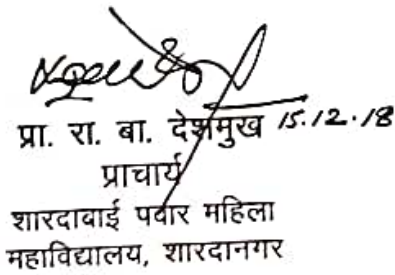 प्रा. रा. बा. देशमुख 15.12.18
प्राचार्य
शारदाबाई पवार महिला
महाविद्यालय, शारदानगर